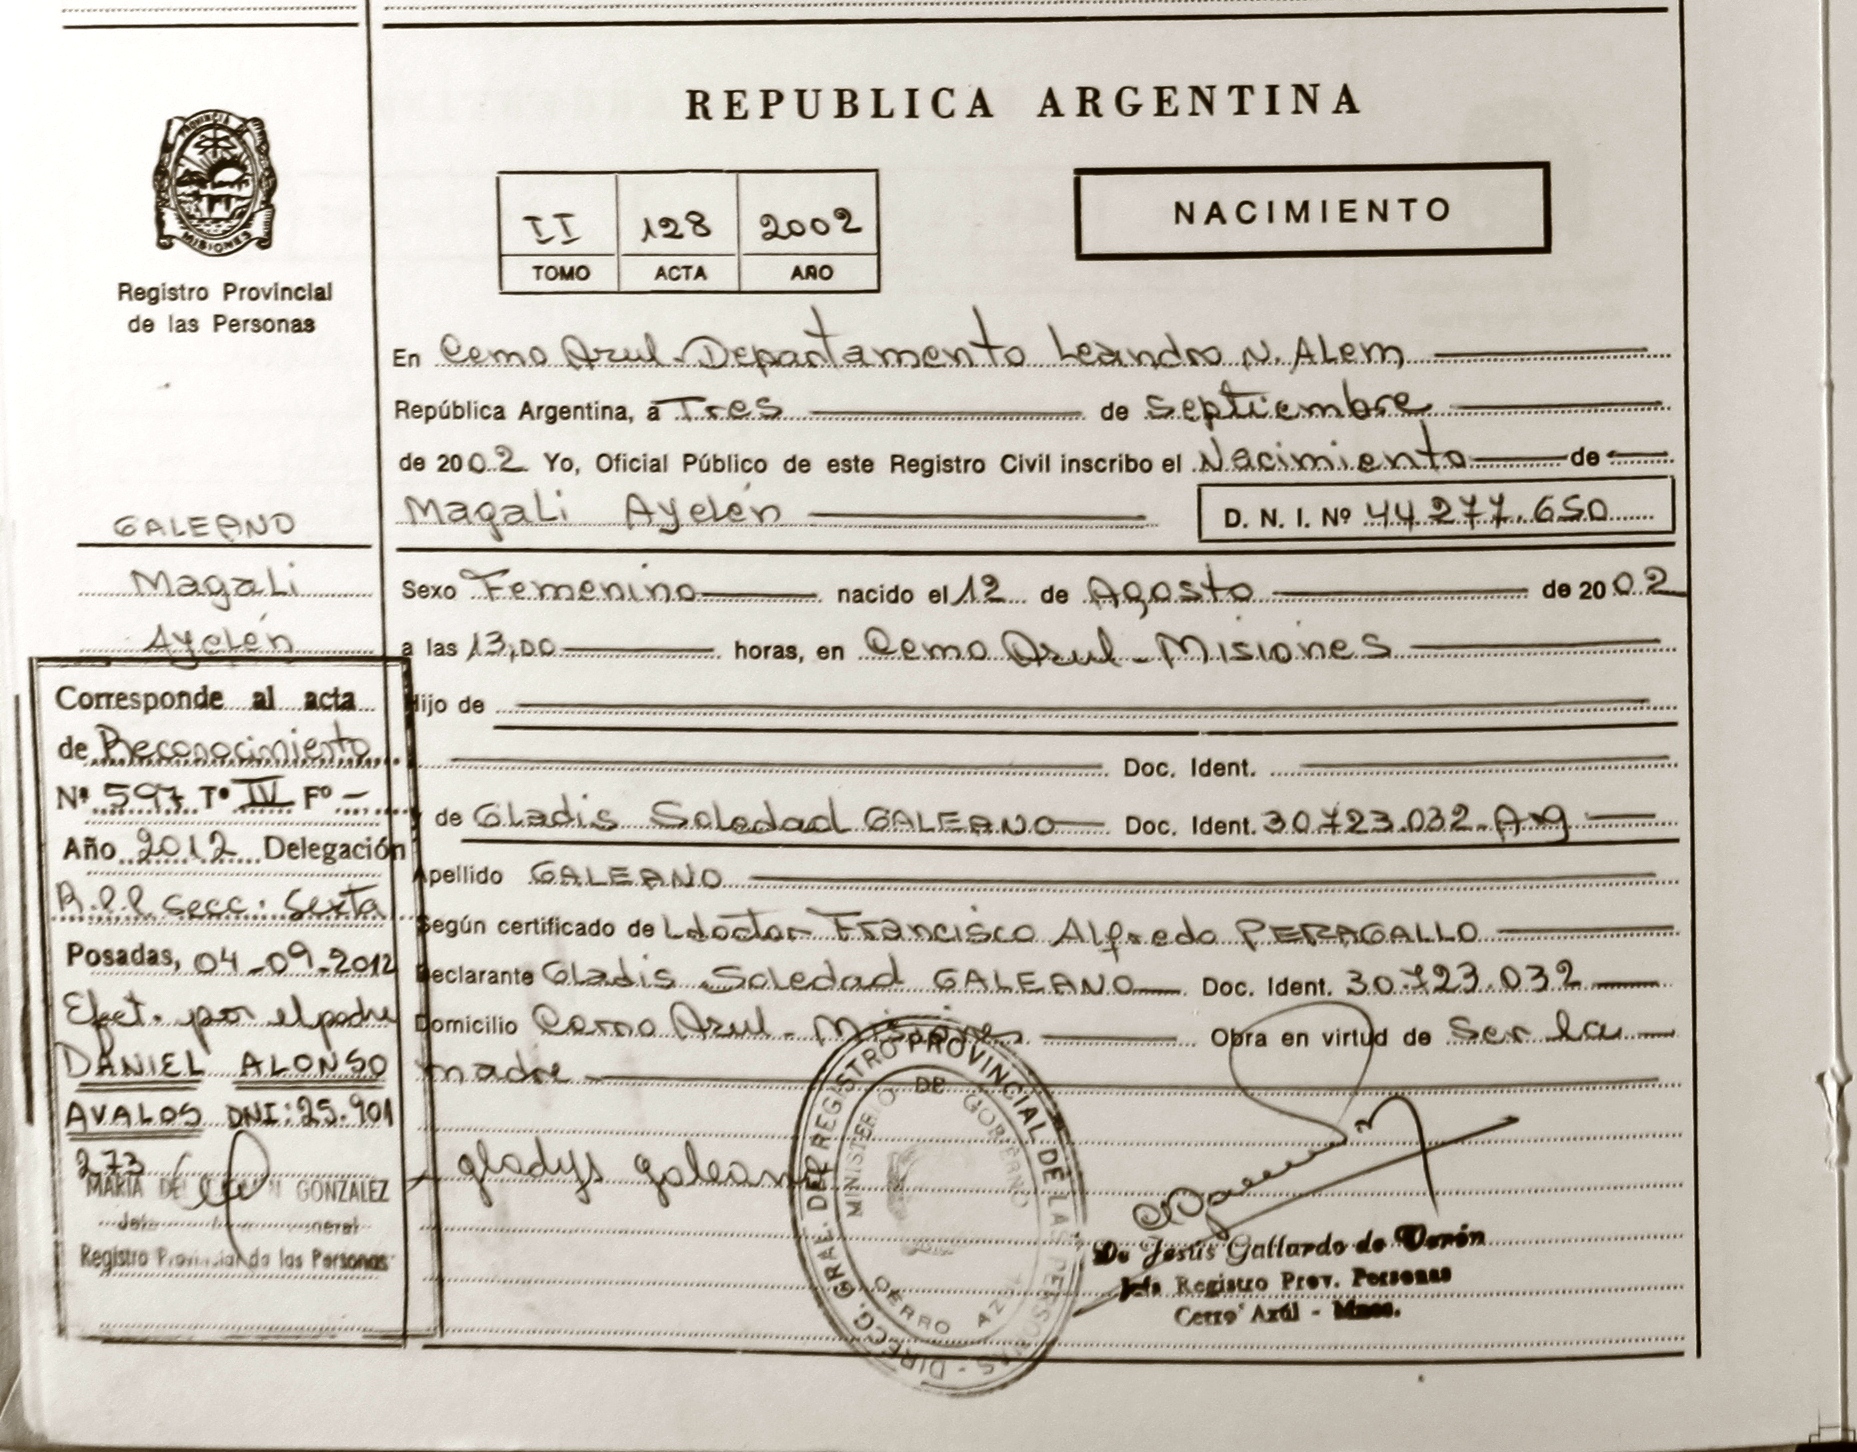 REPUBLICA ARGENTINA
PROVINCIA DE
MISIONES
Registro Provincial
de las Personas
II 128 2002
TOMO ACTA AÑO
NACIMIENTO
En Cerro Azul-Departamento Leandro N. ALem
República Argentina, a Tres de Septiembre
de 2002 Yo, Oficial Público de este Registro Civil inscribo el Nacimiento de
MagaLi Ayelén D. N. I. Nº 44.277.650
Sexo Femenino nacido el 12 de Agosto de 2002
a las 13,00 horas, en Cerro Azul-Misiones
Hijo de
Doc. Ident.
y de GLadis Soledad GALEANO Doc. Ident. 30.723.032-Arg
Apellido GALEANO
Según certificado de L doctor Francisco Alfredo PERAGALLO
Declarante GLadis Soledad GALEANO Doc. Ident. 30.723.032
Domicilio Cerro Azul-Misiones Obra en virtud de Ser la
madre
gladys galeano
De Jesús Gallardo de Verón
Jefa Registro Prov. Personas
Cerro Azúl - Mnes.
DIRECC. GRAL. DEL REGISTRO PROVINCIAL DE LAS PERSONAS
MINISTERIO DE GOBIERNO
CERRO AZUL
GALEANO
MagaLi
Ayelén
Corresponde al acta
de Reconocimiento
Nº 597 Tº IV Fº -
Año 2012 Delegación
secc. Sexta
Posadas, 04-09-2012
Efect. por el padre
DANIEL ALONSO
AVALOS DNI: 25.901
273
MARIA DEL GONZALEZ
Registro Provincial de las Personas